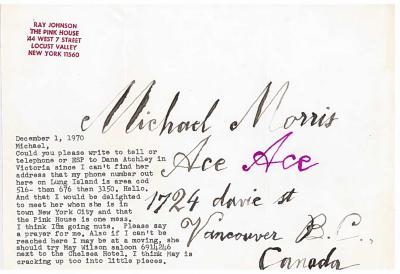 RAY JOHNSON
THE PINK HOUSE
44 WEST 7 STREET
LOCUST VALLEY
NEW YORK 11560
Michael Morris
Ace Ace
1724 davie st
Vancouver B.C.,
Canada
December 1, 1970
Michael,
Could you please write to tell or
telephone or ESP to Dana Atchley in
Victoria since I can't find her
address that my phone number out
here on Lung Island is area cod
516- then 676 then 3150. Hello.
And that I would be delighted
to meet her when she is in
town New York City and that
the Pink House is one mess,
I think I'm going nuts. Please say
a prayer for me. Also if I can't be
reached here I may be at a moving, she
should try May Wilson saloon
next to the Chelsea Hotel, I think May is
cracking up too into little pieces.